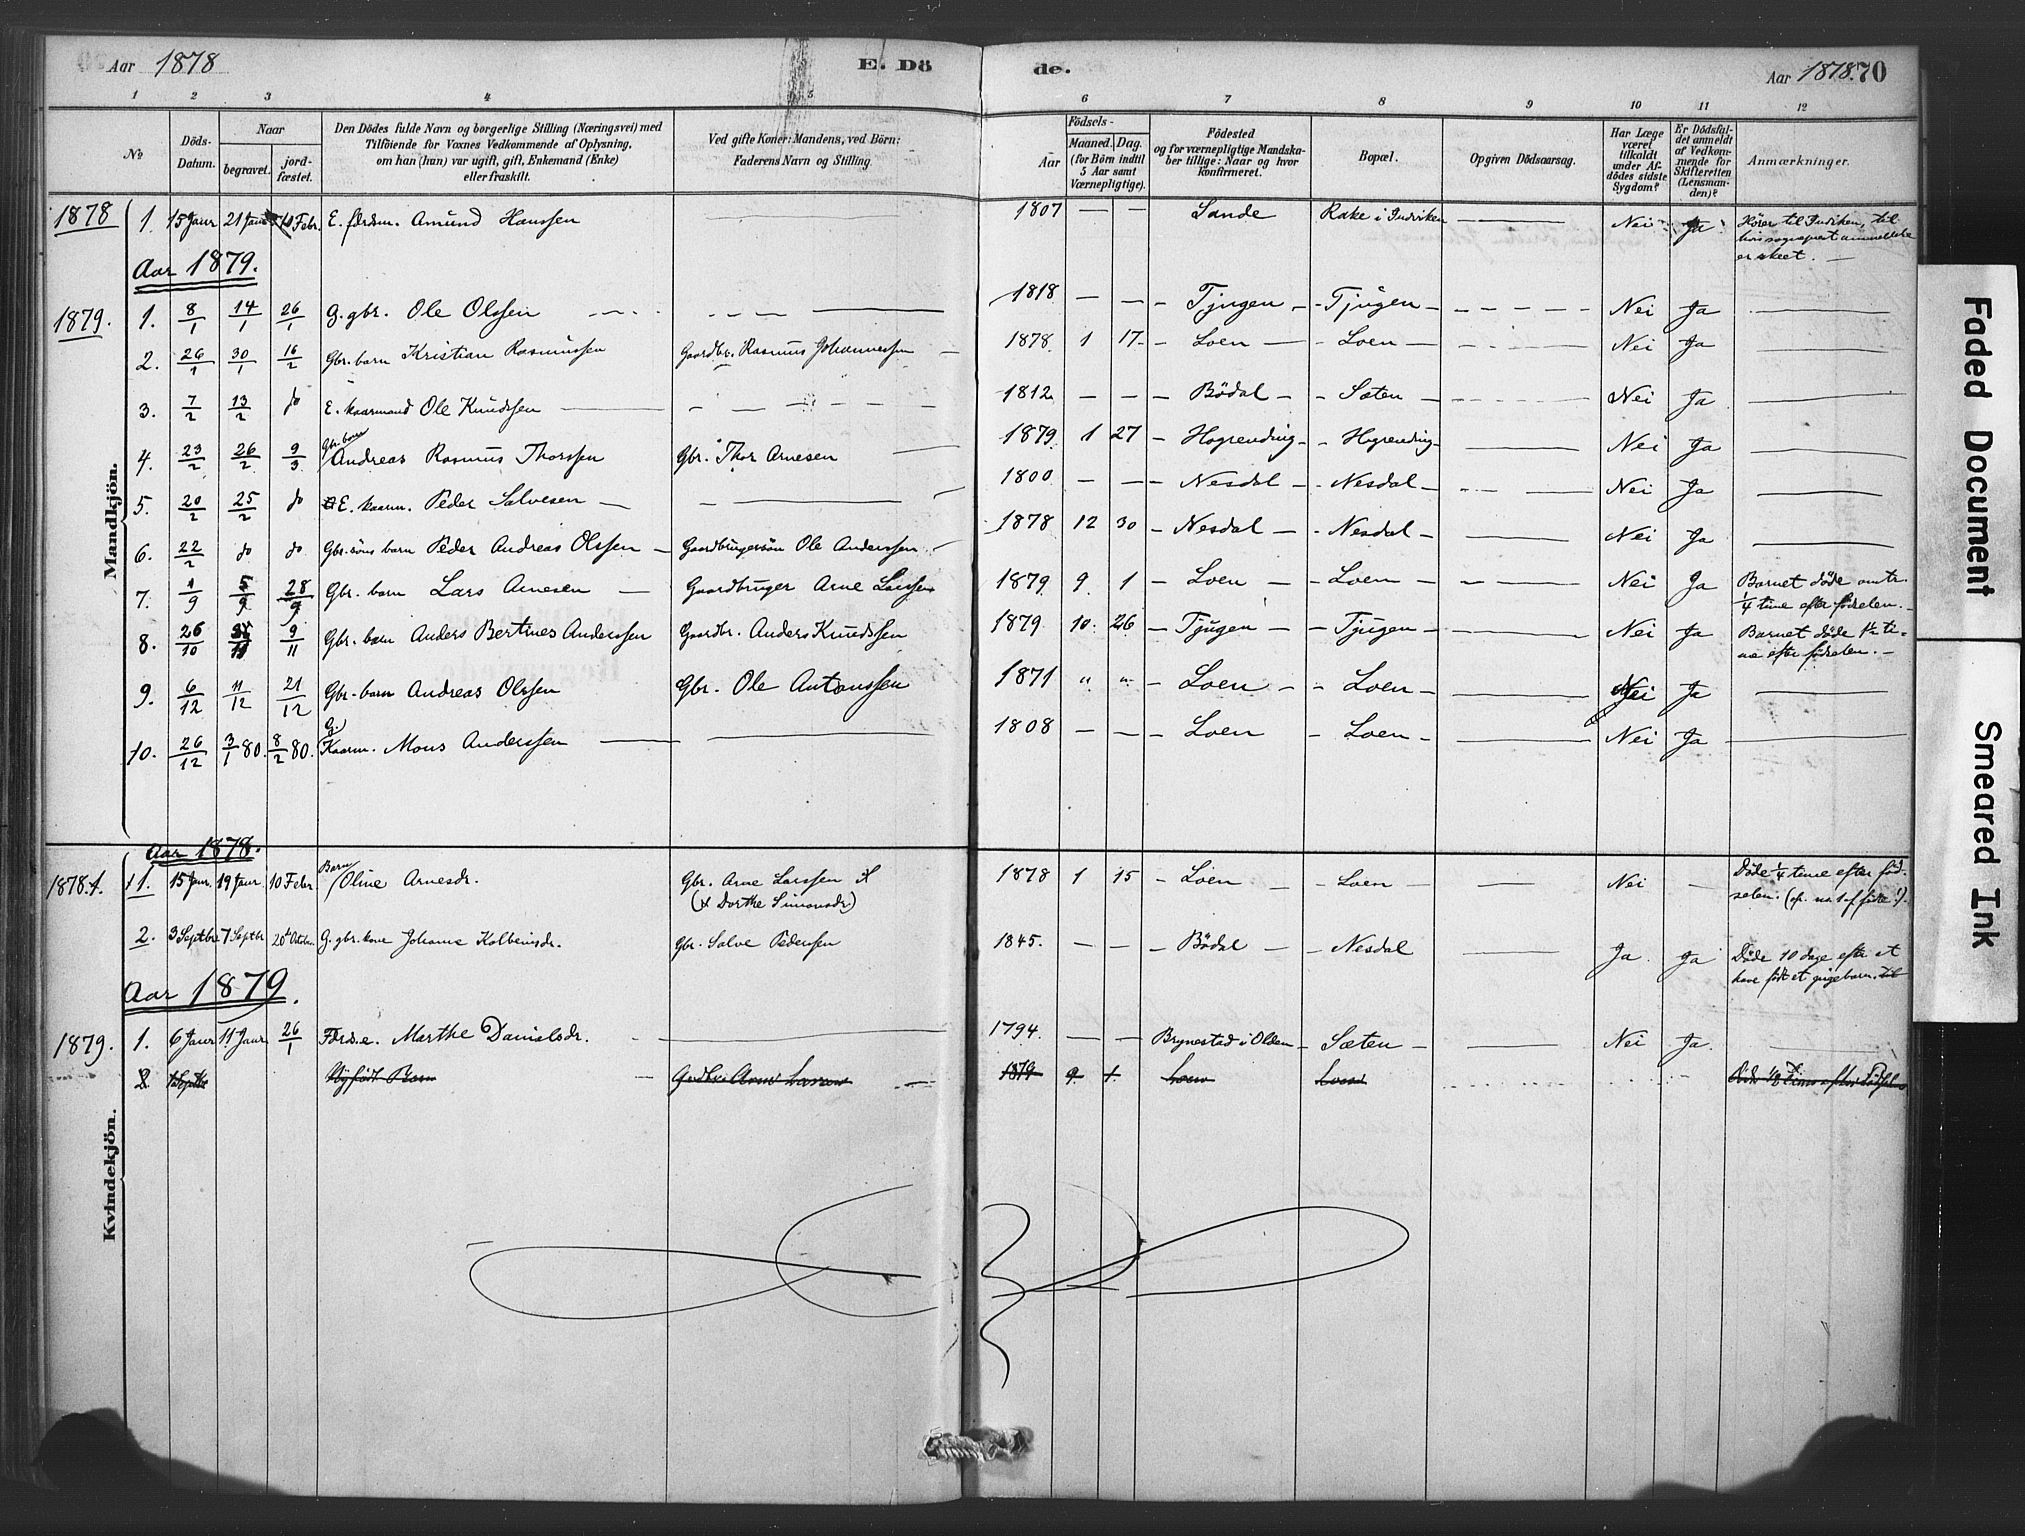 Aar 1878 E. Döde. Aar 1878. 70
1 2 3 4 5 6 7 8 9 10 11 12
№ Döds-Datum. Naar begravet. jordfæstet. Den Dödes fulde Navn og borgerlige Stilling (Næringsvei) med Tilföiende for Voxnes Vedkommende af Oplysning, om han (hun) var ugift, gift, Enkemand (Enke) eller fraskilt. Ved gifte Koner: Mandens, ved Börn: Faderens Navn og Stilling. Födsels- Aar Maaned. Dag. (for Börn indtil 5 Aar samt Værnepligtige). Födested og for værnepligtige Mandskaber tillige: Naar og hvor konfirmeret. Bopæl. Opgiven Dödsaarsag. Har Læge været tilkaldt under Afdödes sidste Sygdom? Er Dödsfaldet anmeldt af Vedkommende for Skifteretten (Lensmanden)? Anmærkninger.
Mandkjön.
1878 1. 15 Janr 21 Janr 10 Febr. E. færdm. Amund Hanssen 1807 — — Sande Rake i Indviken — Nei Ja Hører til Indviken, til hvis sognepræst anmeldelse er skeet. —
Aar 1879.
1879. 1. 8/1 14/1 26/1 G. gbr. Ole Olssen 1818 — — Tjugen Tjugen Nei Ja
2. 26/1 30/1 16/2 Gbr. barn Kristian Rasmussen Gaardbr. Rasmus Johannessen 1878 1 17 Loen Loen Nei Ja
3. 7/2 13/2 do E. kaarmand Ole Knudssen 1812 — — Bödal Sæten Nei Ja
4. 23/2 26/2 9/3 Gbr. barn Andreas Rasmus Thorssen Gbr. Thor Arnesen 1879 1 27 Hogrending Hogrending Nei Ja
5. 20/2 25/2 do E. kaarm. Peder Salvesen 1800 — — Nesdal Nesdal Nei Ja
6. 22/2 do do Gbr. søns barn Peder Andreas Olssen Gaardbrugersön Ole Anderssen 1878 12 30 Nesdal Nesdal Nei Ja
7. 1/9 5/9 28/9 Gbr. barn Lars Arnesen Gaardbruger Arne Larssen 1879 9 1 Loen Loen Nei Ja Barnet döde omtr. 1/4 time efter födselen.
8. 26/10 9/11 Gbr. barn Anders Bertines Anderssen Gaardbr. Anders Knudssen 1879 10 26 Tjugen Tjugen Nei Ja Barnet døde 1/2 time efter födselen. —
9. 6/12 11/12 21/12 Gbr. barn Andreas Olssen Gbr. Ole Antonssen 1871 " " Loen Loen Nei Ja
10. 26/12 3/1 80. 8/2 80. G. Kaarm. Mons Anderssen 1808 — — Loen Loen Nei Ja
Kvindekjön.
Aar 1878.
1878. 1. 15 Janr. 19 Janr. 10 Febr. Barn Oline Arnesdr. Gbr. Arne Larssen (x Dorthe Simonsdr.) 1878 1 15 Loen Loen Nei — Døde 1/4 time efter fødselen.
2. 3 Septbr 7 Septbr 20de Octbr. G. gbr. kone Johanne Kolbeinsdr. Gbr. Salve Pedersen 1845. — — Bödal Nesdal Ja Ja Døde 10 dage efter at have födt et pigebarn.
Aar 1879.
1879. 1. 6 Janr 11 Janr 26/1 Færd. e. Marthe Danielsdr. 1794 — — Brynestad i Olden Sæten Nei Ja
2. 1 Septbr Nyfödt Barn Gaardbr. Arne Larssen 1879 9. 1. Loen Loen
Faded Document
Smeared Ink